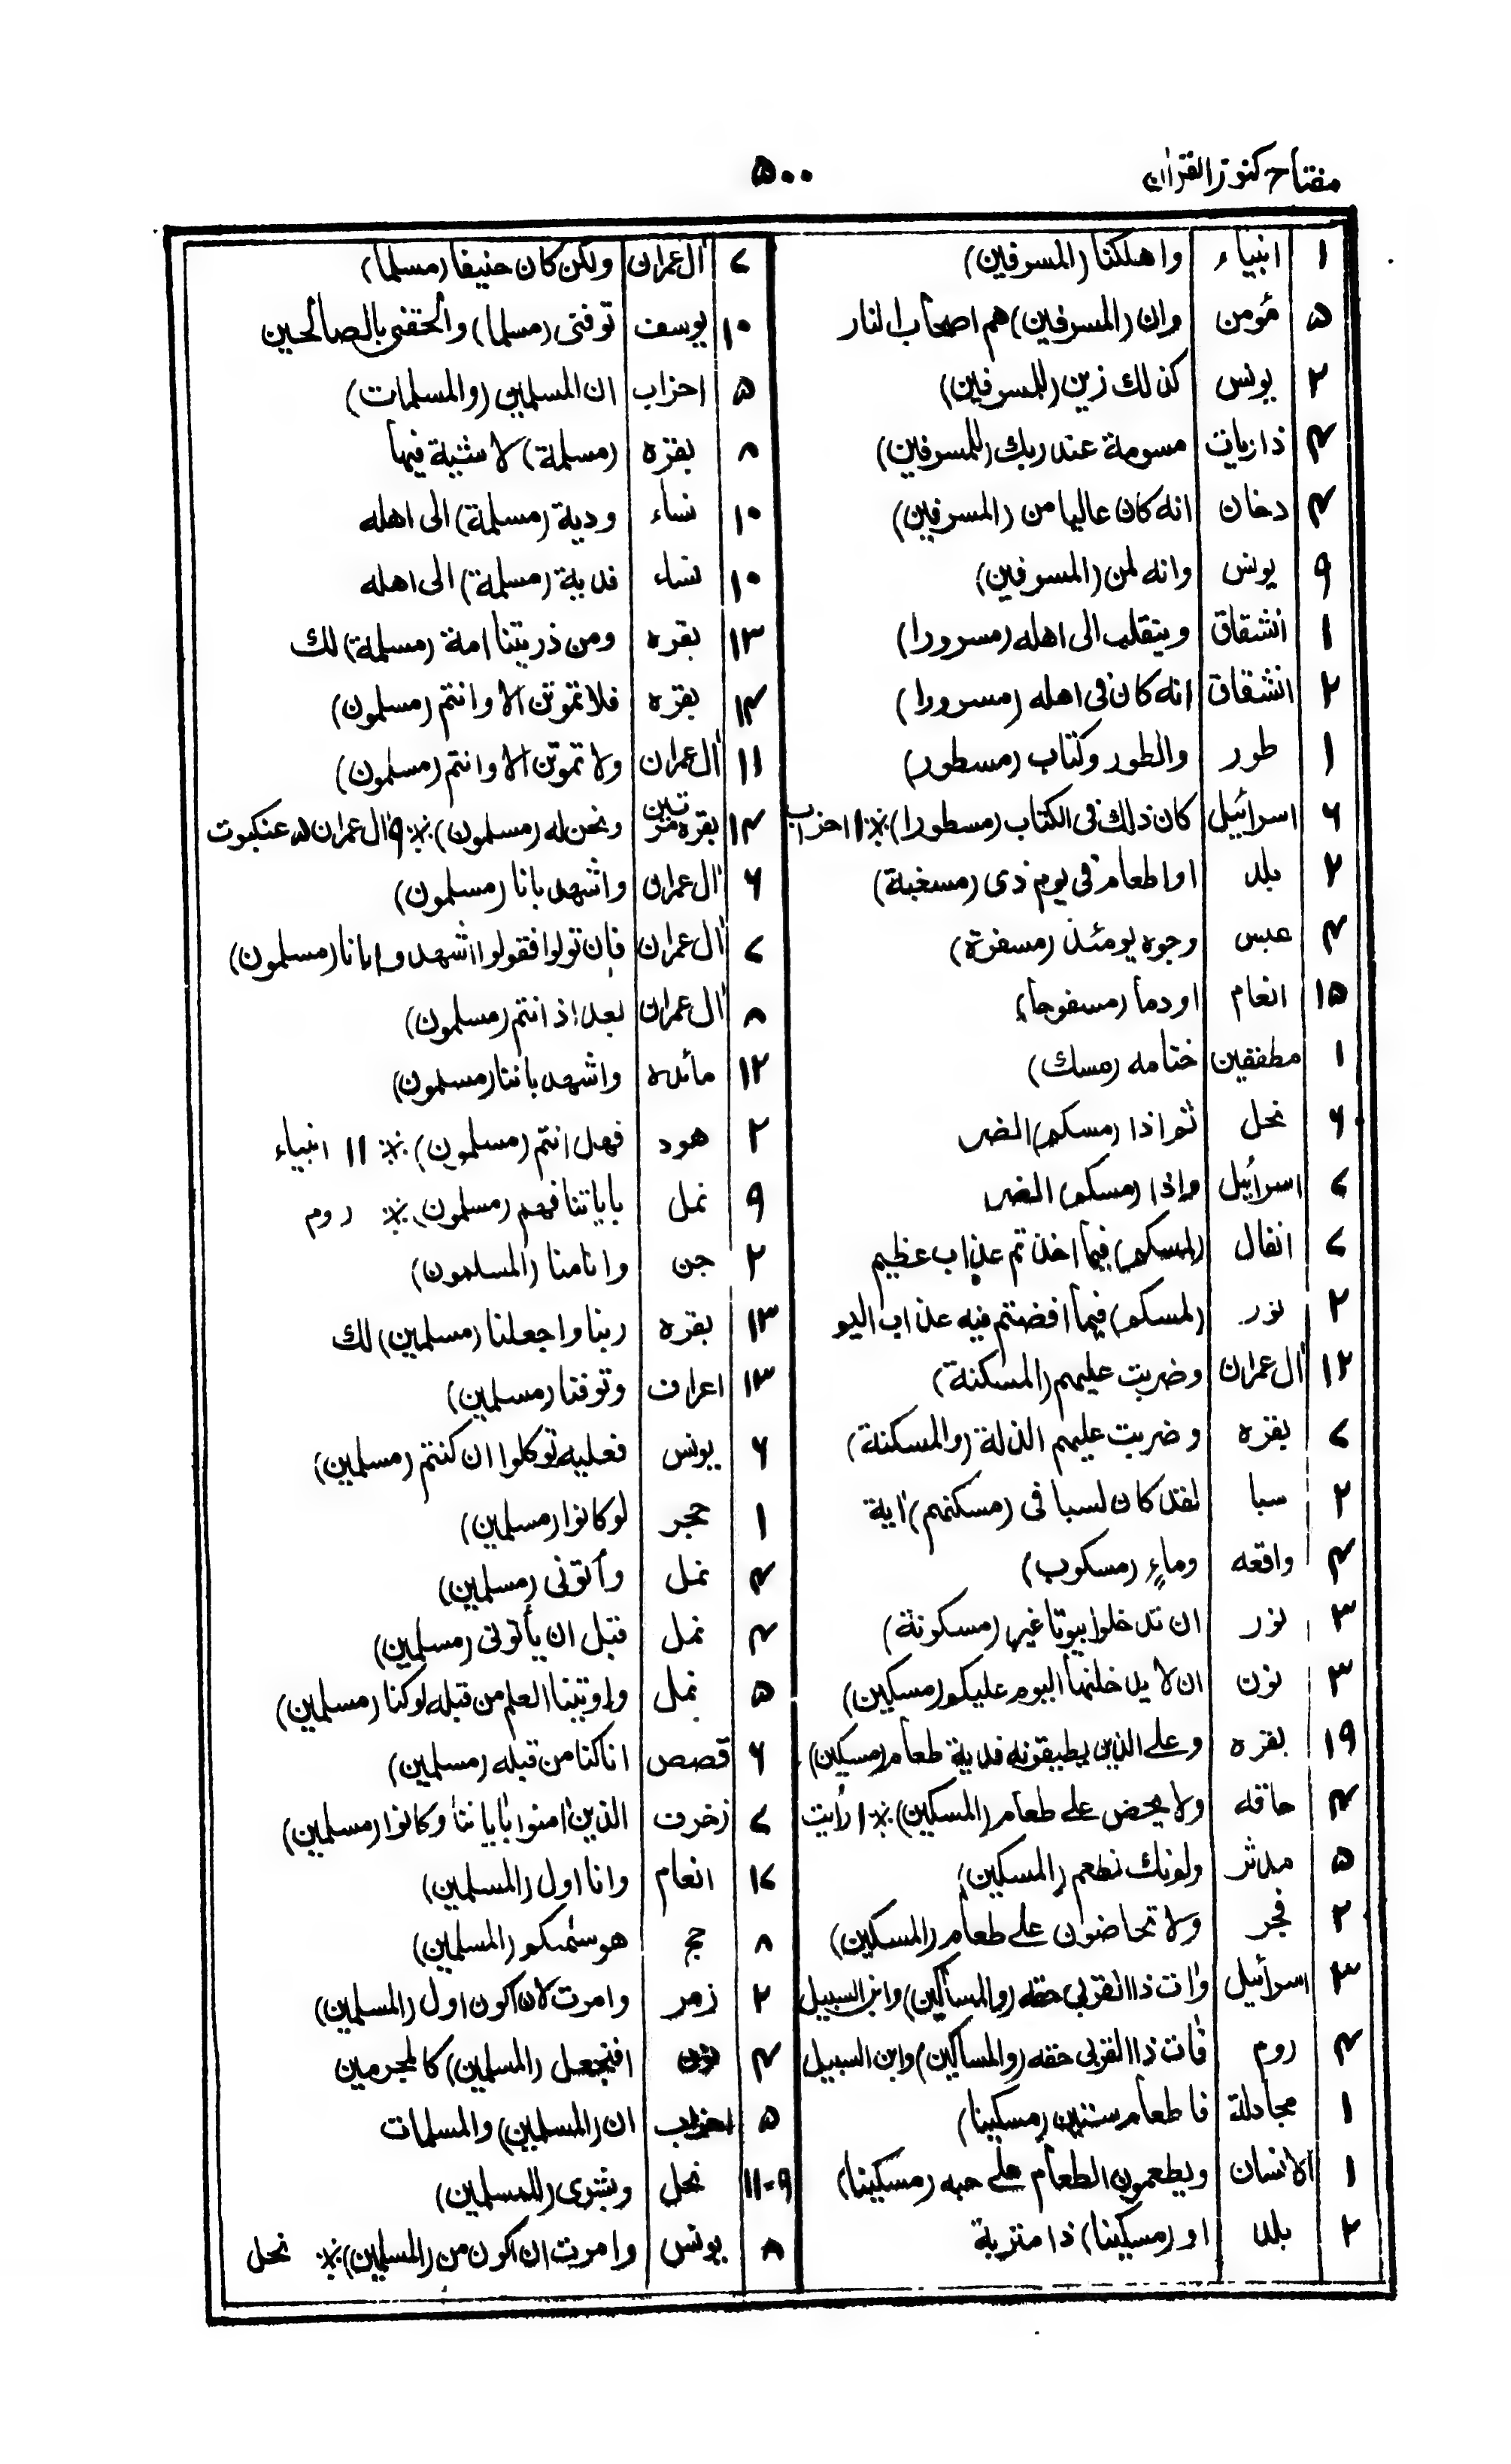 مفتاح كنوز القرآن
۵۰۰
۱ انبیاء واهلكنا (المسرفين)
۵ مؤمن وان (المسرفين) هم اصحاب النار
۲ يونس كذلك زين (للمسرفين)
۴ ذاريات مسومة عند ربك (للمسرفين)
۴ دخان انه كان عاليا من (المسرفين)
۹ يونس وانه لمن (المسرفين)
۱ انشقاق وينقلب الى اهله (مسرورا)
۲ انشقاق انه كان فى اهله (مسرورا)
۱ طور والطور وكتاب (مسطور)
۶ اسرائيل كان ذلك فى الكتاب (مسطورا) ※ ۱ احزاب
۲ بلد او اطعام فى يوم ذى (مسغبة)
۴ عبس وجوه يومئذ (مسفرة)
۱۵ انعام او دما (مسفوحا)
۱ مطففين ختامه (مسك)
۶ نحل ثم اذا (مسكم) الضر
۷ اسرائيل واذا (مسكم) الضر
۷ انفال (لمسكم) فيما اخذتم عذاب عظيم
۲ نور (لمسكم) فيما افضتم فيه عذاب اليم
۱۲ آل عمران وضربت عليهم (المسكنة)
۷ بقره وضربت عليهم الذلة (والمسكنة)
۲ سبا لقد كان لسبا فى (مسكنهم) آية
۴ واقعه وماءٍ (مسكوب)
۳ نور ان تدخلوا بيوتا غير (مسكونة)
۳ نون ان لا يدخلنها اليوم عليكم (مسكين)
۱۹ بقره وعلى الذين يطيقونه فدية طعام (مسكين)
۴ حاقه ولا يحض على طعام (المسكين) ※ ۱ رأيت
۵ مدثر ولم نك نطعم (المسكين)
۲ فجر ولا تحاضون على طعام (المسكين)
۳ اسرائيل وآت ذا القربى حقه (والمساكين) وابن السبيل
۴ روم فآت ذا القربى حقه (والمساكين) وابن السبيل
۱ مجادلة فاطعام ستين (مسكينا)
۱ الانسان ويطعمون الطعام على حبه (مسكينا)
۲ بلد او (مسكينا) ذا متربة
۷ آل عمران ولكن كان حنيفا (مسلما)
۱۰ يوسف توفنى (مسلما) والحقنى بالصالحين
۵ احزاب ان المسلمين (والمسلمات)
۸ بقره (مسلمة) لا شية فيها
۱۰ نساء ودية (مسلمة) الى اهله
۱۰ نساء فدية (مسلمة) الى اهله
۱۳ بقره ومن ذريتنا امة (مسلمة) لك
۱۴ بقره فلا تموتن الا وانتم (مسلمون)
۱۱ آل عمران ولا تموتن الا وانتم (مسلمون)
۱۴ بقره مرتين ونحن له (مسلمون) ※ ۹ آل عمران ۵ عنكبوت
۶ آل عمران واشهد بانا (مسلمون)
۷ آل عمران فان تولوا فقولوا اشهدوا بانا (مسلمون)
۸ آل عمران بعد اذ انتم (مسلمون)
۱۲ مائده واشهد باننا (مسلمون)
۲ هود فهل انتم (مسلمون) ※ ۱۱ انبياء
۹ نمل باياتنا فهم (مسلمون) ※ روم
۲ جن وانا منا (المسلمون)
۱۳ بقره ربنا واجعلنا (مسلمين) لك
۱۳ اعراف وتوفنا (مسلمين)
۶ يونس فعليه توكلوا ان كنتم (مسلمين)
۱ حجر لو كانوا (مسلمين)
۴ نمل وأتونى (مسلمين)
۴ نمل قبل ان يأتونى (مسلمين)
۵ نمل واوتينا العلم من قبله وكنا (مسلمين)
۶ قصص انا كنا من قبله (مسلمين)
۷ زخرف الذين آمنوا بآياتنا وكانوا (مسلمين)
۱۷ انعام وانا اول (المسلمين)
۸ حج هو سمكم (المسلمين)
۲ زمر وامرت لان اكون اول (المسلمين)
۴ نون افنجعل (المسلمين) كالمجرمين
۵ احزاب ان (المسلمين) والمسلمات
۱۱-۹ نحل وبشرى (للمسلمين)
۸ يونس وامرت ان اكون من (المسلمين) ※ نحل